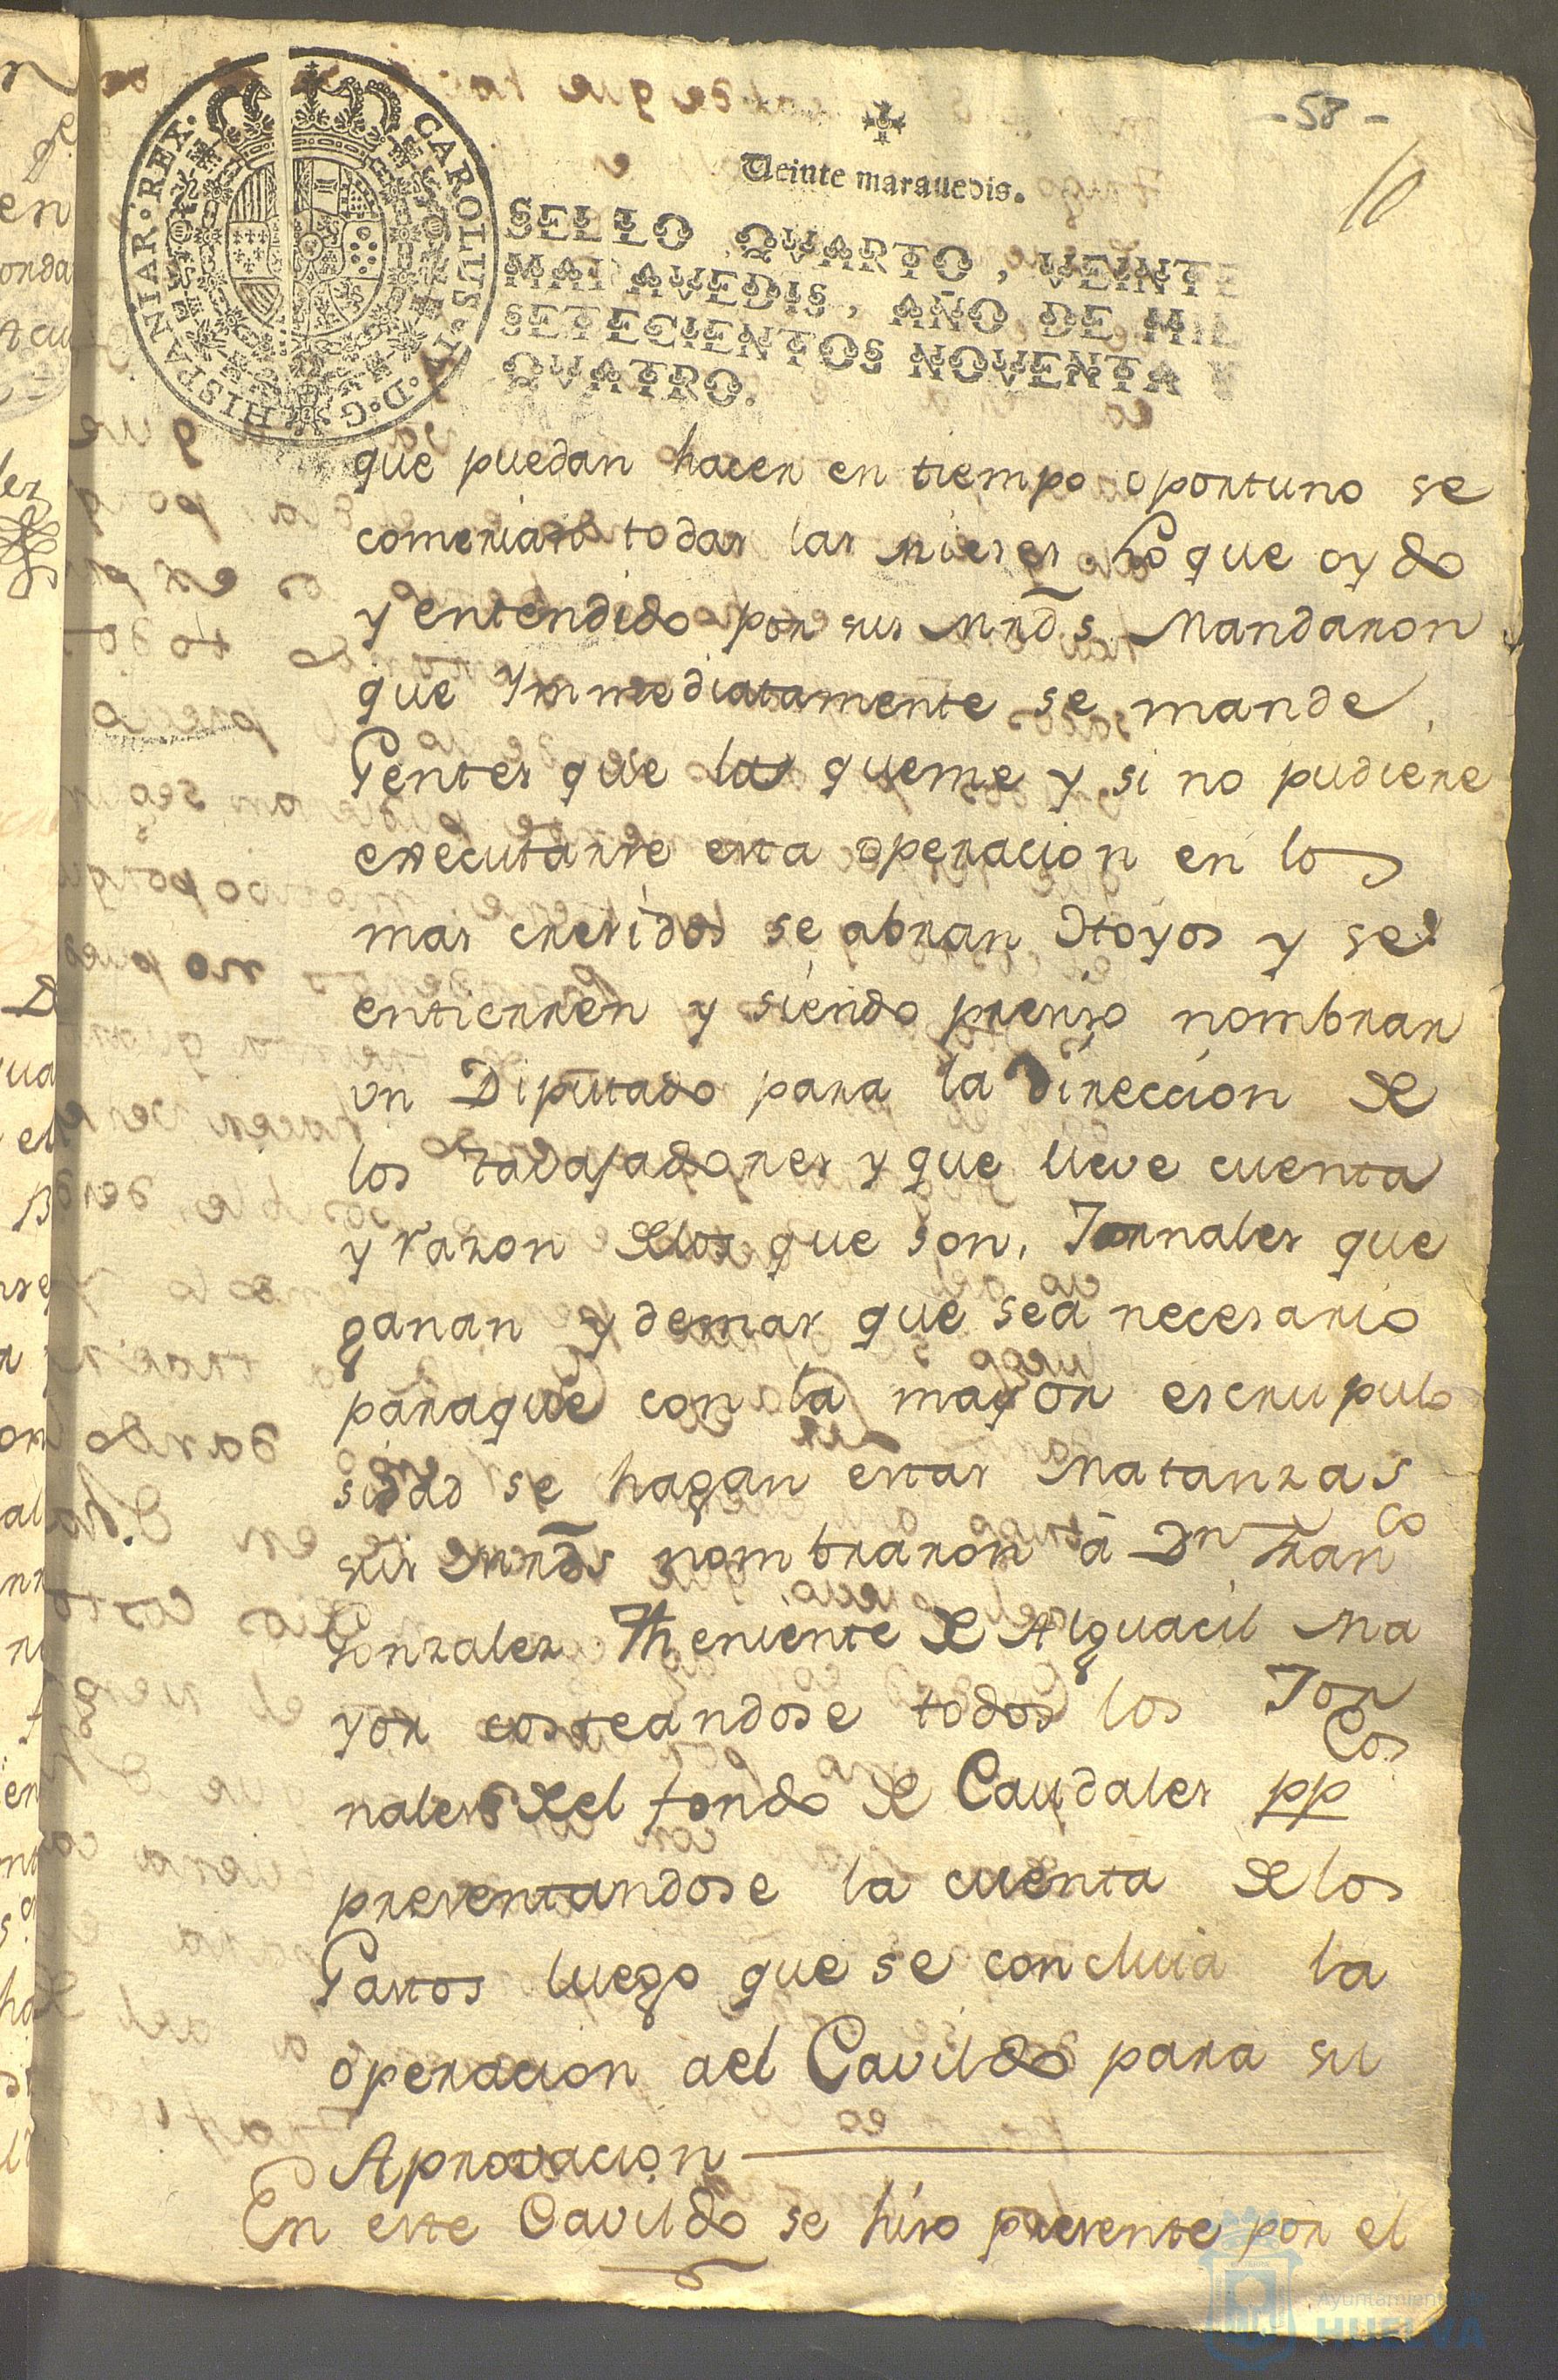 - 58 -
10
Veinte maravedis.
CAROLUS IV D G HISPANIAR REX
SELLO QVARTO, VEINTE
MARAVEDIS, AÑO DE MIL
SETECIENTOS NOVENTA Y
QVATRO.
que puedan hacer en tiempo oportuno se
comerian todas las mieses Lo que oydo
y entendido por sus Mrds. Mandaron
que Ynmediatamente se mande
Gentes que las queme y si no pudiere
executarse esta operacion en los
mas cresidos se abran Hoyos y se
entierren y siendo preciso nombrar
un Diputado para la direccion de
los trabajadores y que lleve cuenta
y razon delos que son, Jornales que
ganan y demas que sea necesario
paraque con la mayor escrupulo
sidad se hagan estas Matanzas
sus Mrds nombraron á Dn Franco
Gonzalez Theniente de Alguacil Ma
yor costeandose todos los Jor
nales del fondo de Caudales ppcos
presentandose la cuenta delos
Gastos luego que se concluia la
operacion ael Cavildo para su
Aprovacion
En este Cavildo se hiso presente por el
Ayuntamiento
HUELVA